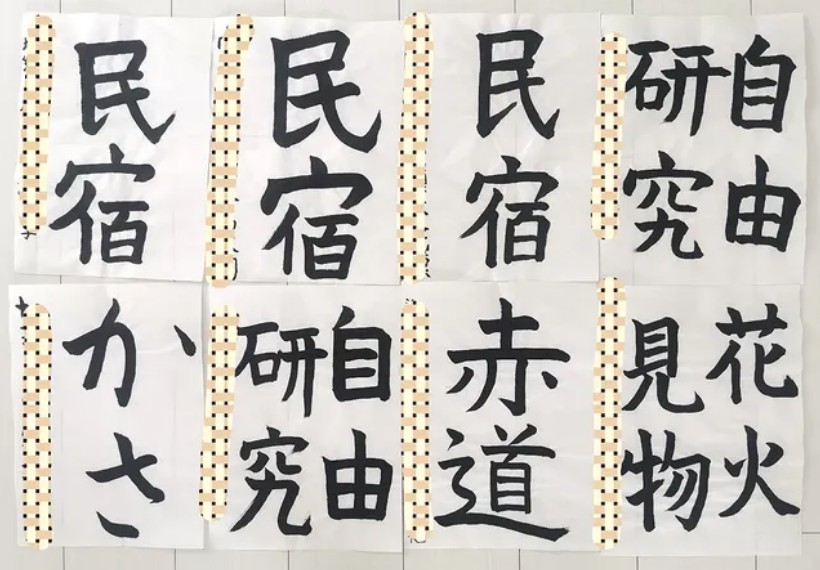 民宿
民宿
民宿
自由
研究
かさ
自由
研究
赤道
花火
見物